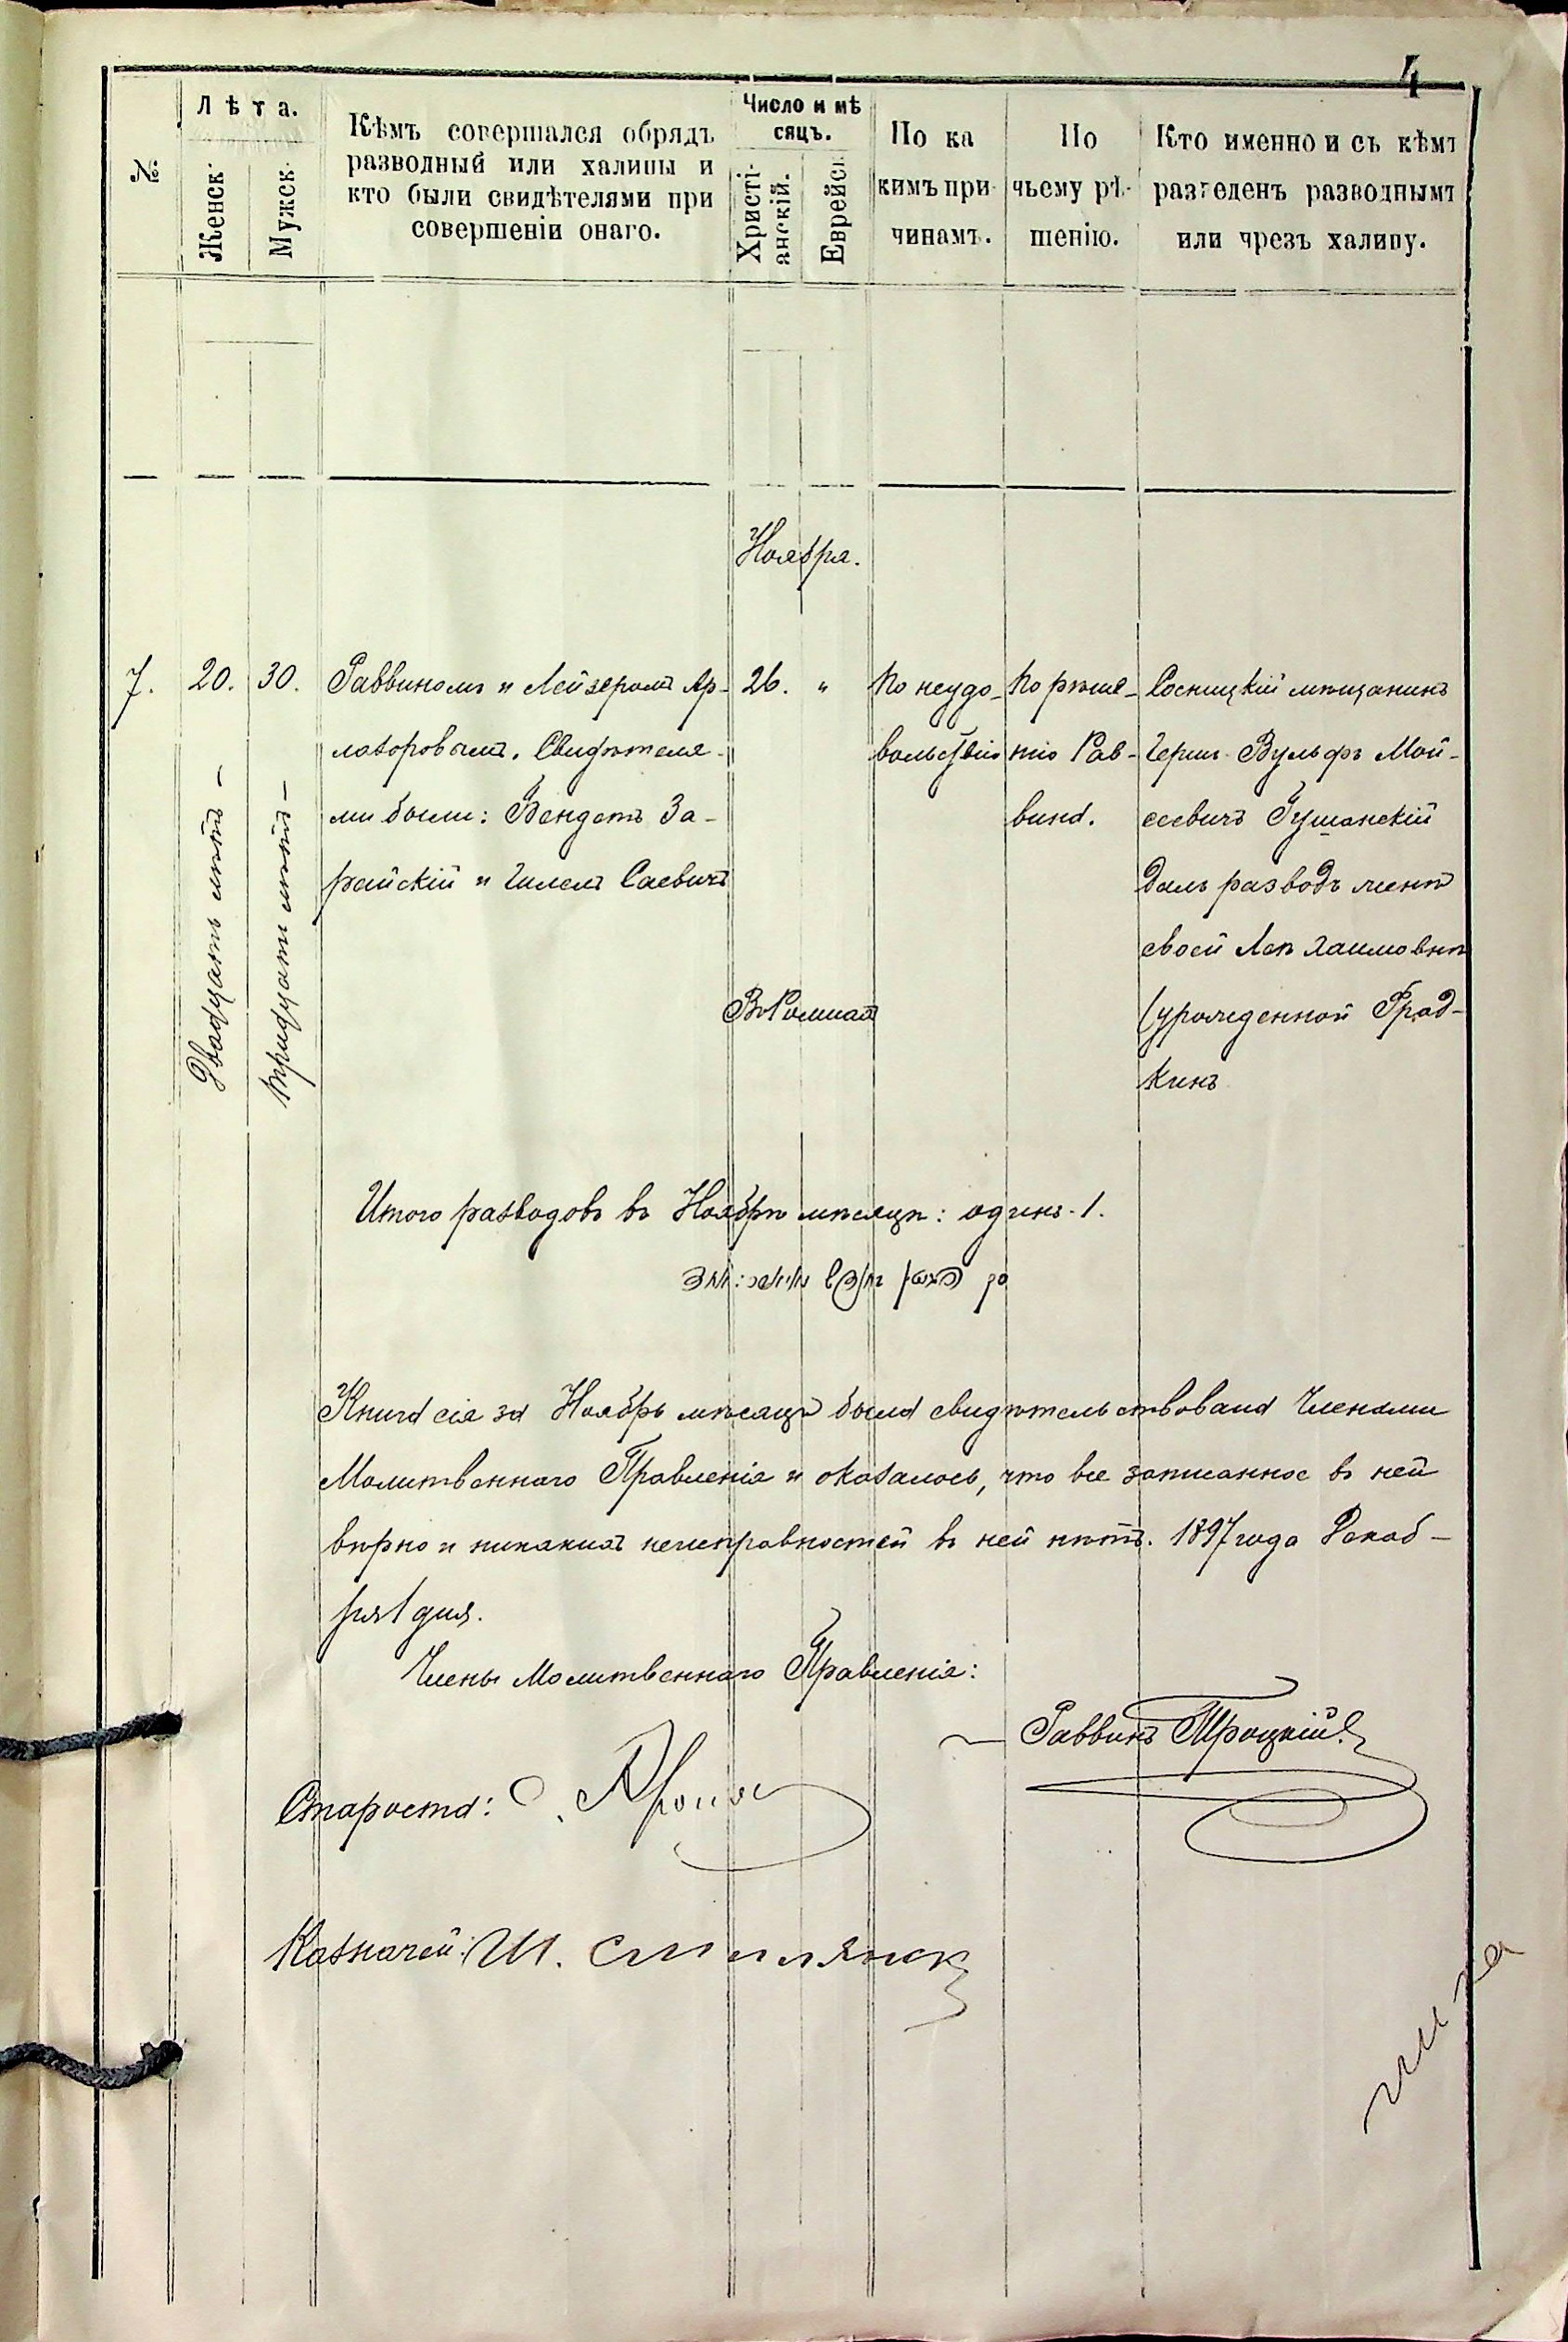 4
№
Лѣта.
Женск.
Мужск.
Кѣмъ совершался обрядъ
разводный или халицы и
кто были свидѣтелями при
совершеніи онаго.
Число и мѣ
сяцъ.
Христі-
анскій.
Еврейск.
По ка
кимъ при-
чинамъ.
По
чьему рѣ-
шенію.
Кто именно и съ кѣмъ
разведенъ разводнымъ
или чрезъ халицу.
Ноября.
7.
20.
Двадцать лѣтъ —
30.
тридцать лѣтъ —
Раввиномъ и Лейзеромъ Ар-
лазоровымъ. Свидѣтеля-
ми были: Бендетъ За-
райскій и Гилелъ Саевичъ
26. "
Въ Ромнахъ
По неудо-
вольствію
По рѣше-
нію Рав-
вина.
Сосницкій мѣщанинъ
Гершъ-Вульфъ Мой-
сеевичъ Гушанскій
далъ разводъ женѣ
своей Леѣ Хаимовнѣ
(урожденной Фрад-
кинъ
Итого разводовъ въ Ноябрѣ мѣсяцѣ: одинъ. 1.
Книга сія за Ноябрь мѣсяцъ была свидѣтельствована Членами
Молитвеннаго Правленія и оказалось, что все записанное въ ней
вѣрно и никакихъ неисправностей въ ней нѣтъ. 1897 года Декаб-
ря 1 дня.
Члены Молитвеннаго Правленія:
Раввинъ Троцкій
Староста:
Казначей: Ш. Смилянск